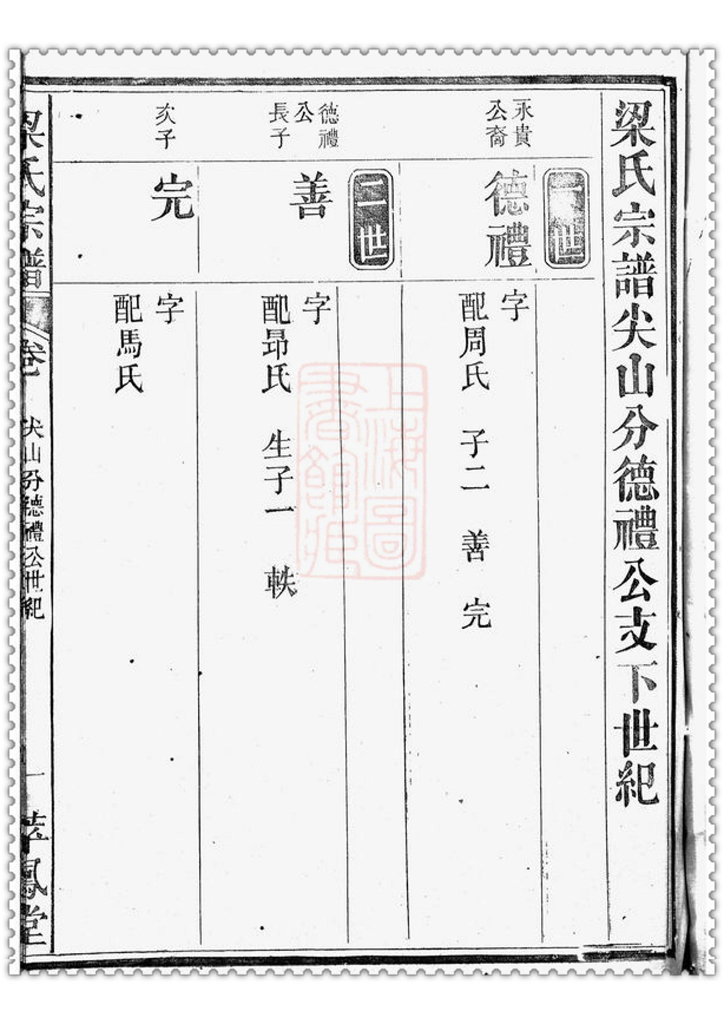 梁氏宗譜尖山分德禮公支下世紀
一世
永貴
公裔
德禮
字
配周氏 子二 善 完
二世
德禮
公
長子
善
字
配昻氏 生子一 軼
次子
完
字
配馬氏
梁氏宗譜
卷
尖山分德禮公世紀
一
萃鳳堂
上海圖
書館藏